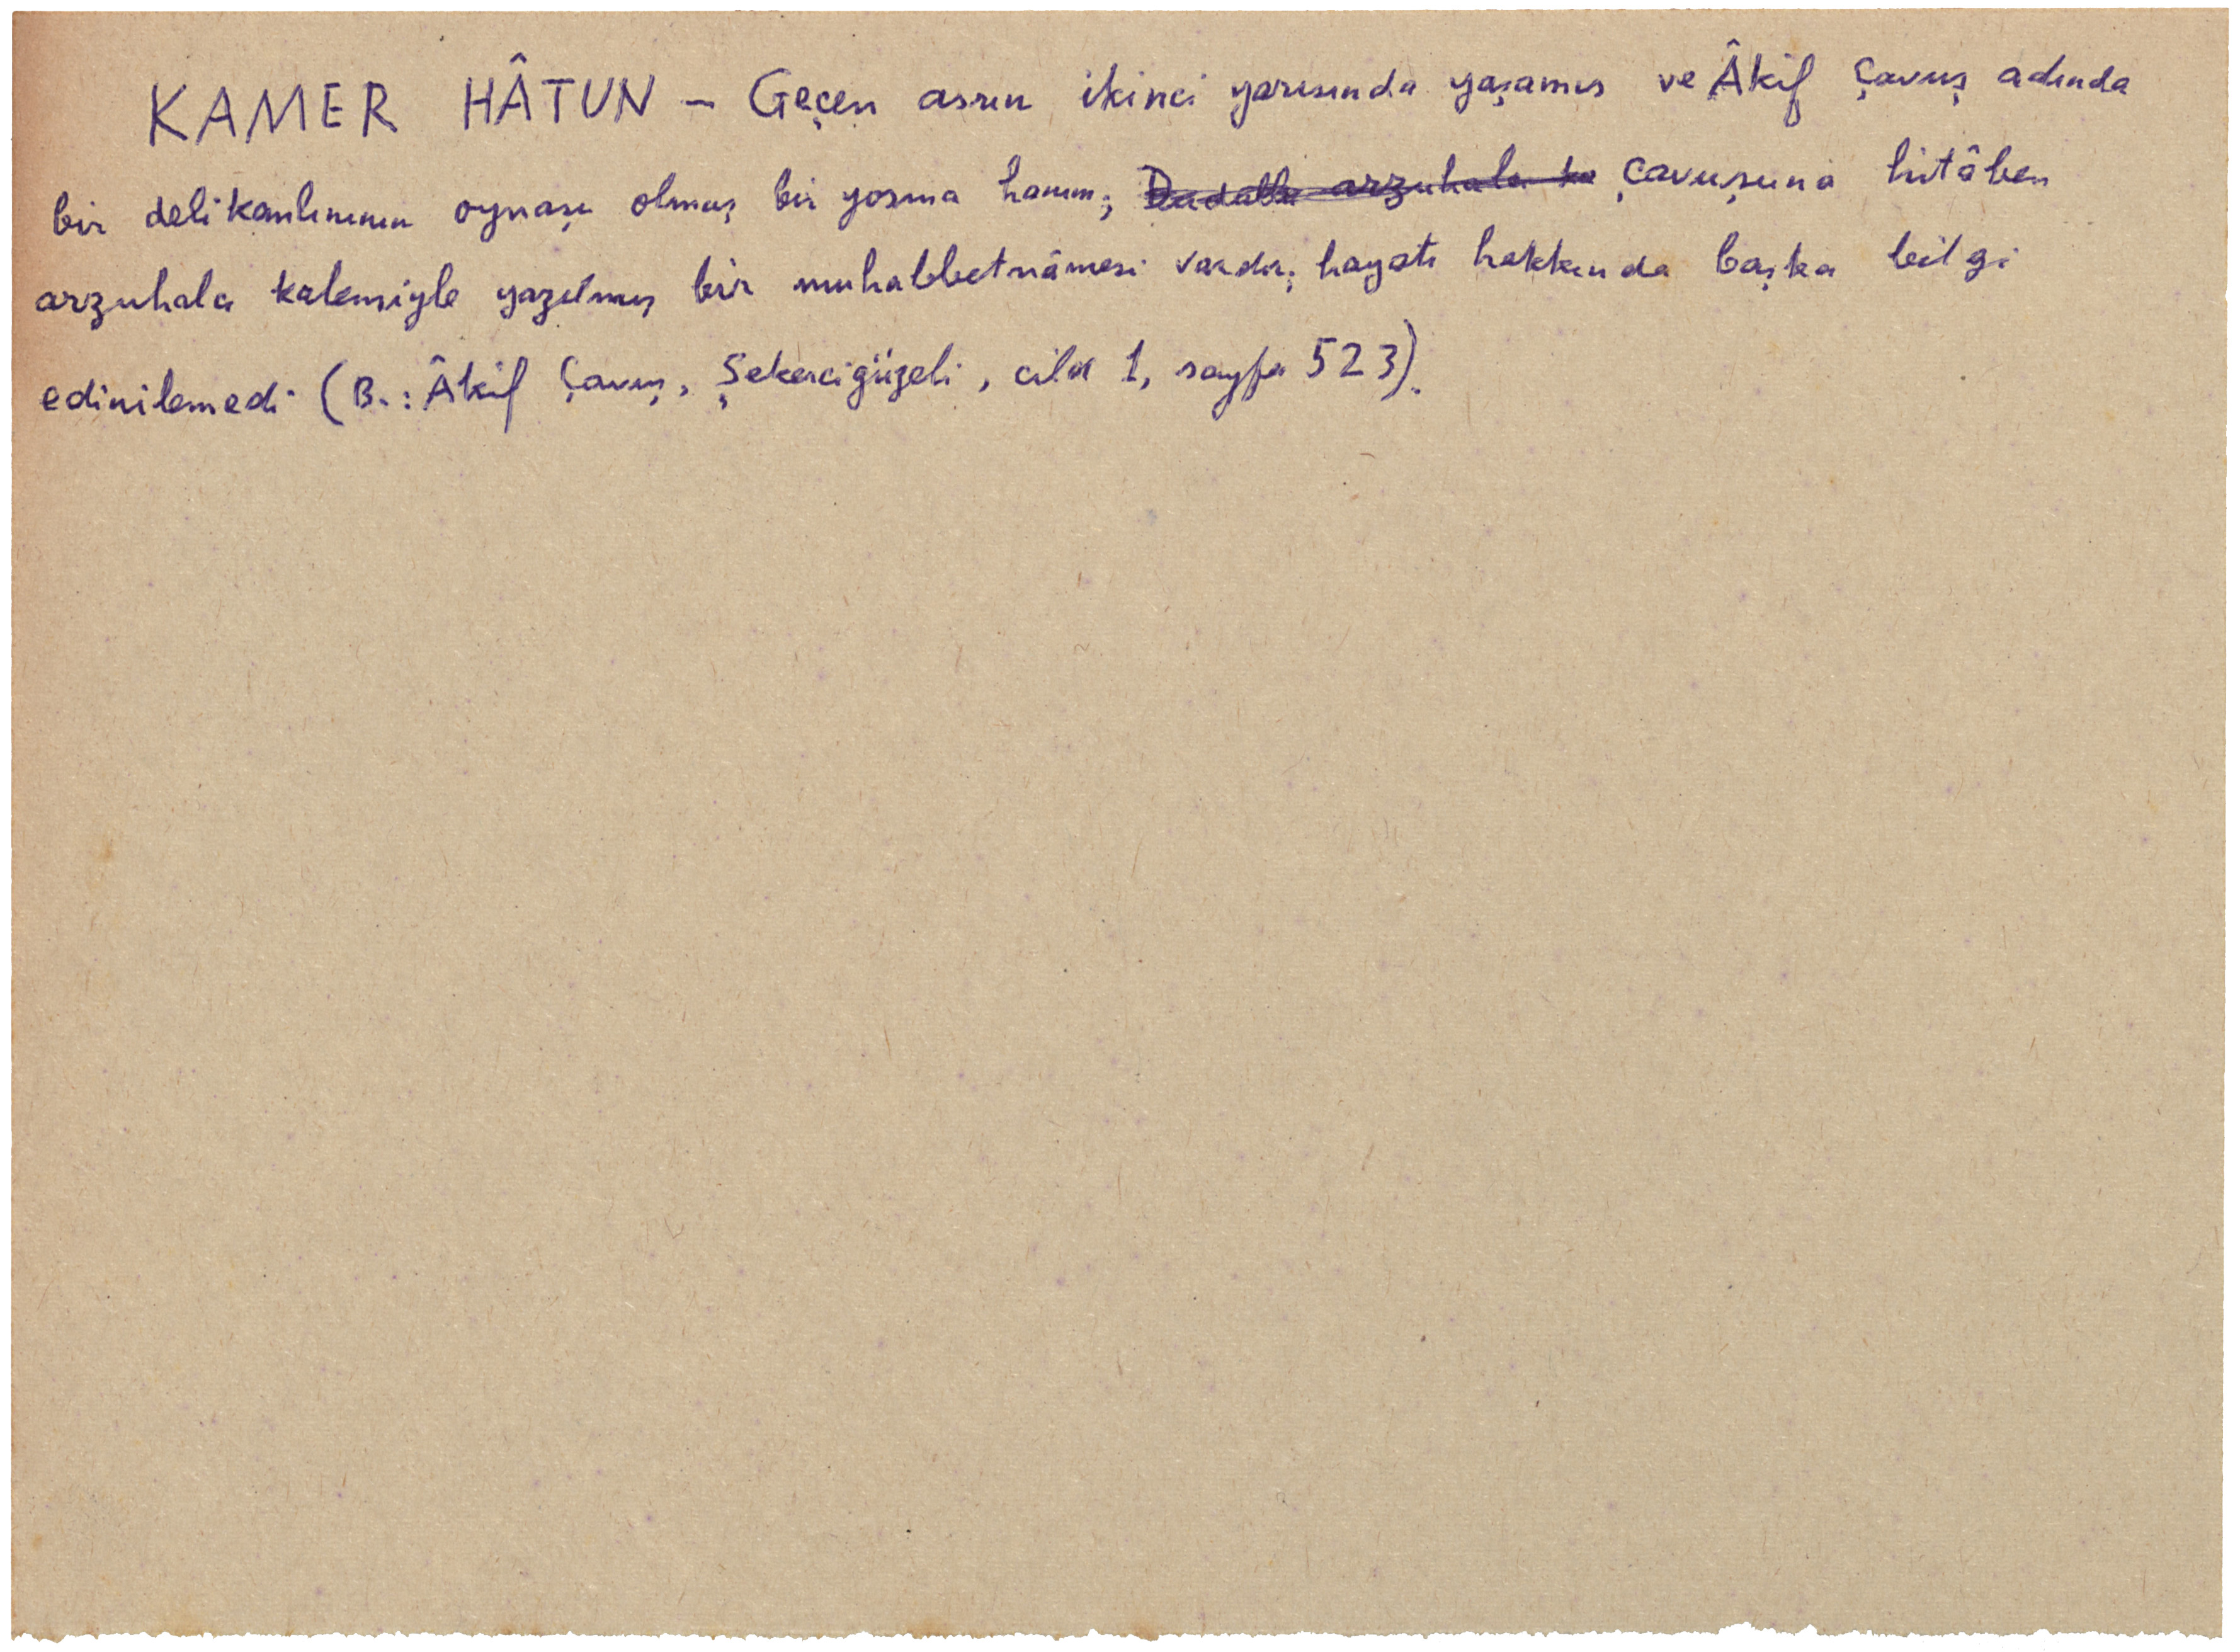 KAMER HÂTUN – Geçen asrın ikinci yarısında yaşamış ve Âkif Çavuş adında
bir delikanlınının oynaşı olmuş bir yosma hanım; arzuhala ka çavuşuna hitâben
arzuhala kalemiyle yazılmış bir muhabbetnâmesi vardır; hayatı hakkında başka bilgi
edinilemedi (B.: Âkif Çavuş, Şekercigüzeli, cild 1, sayfa 523).